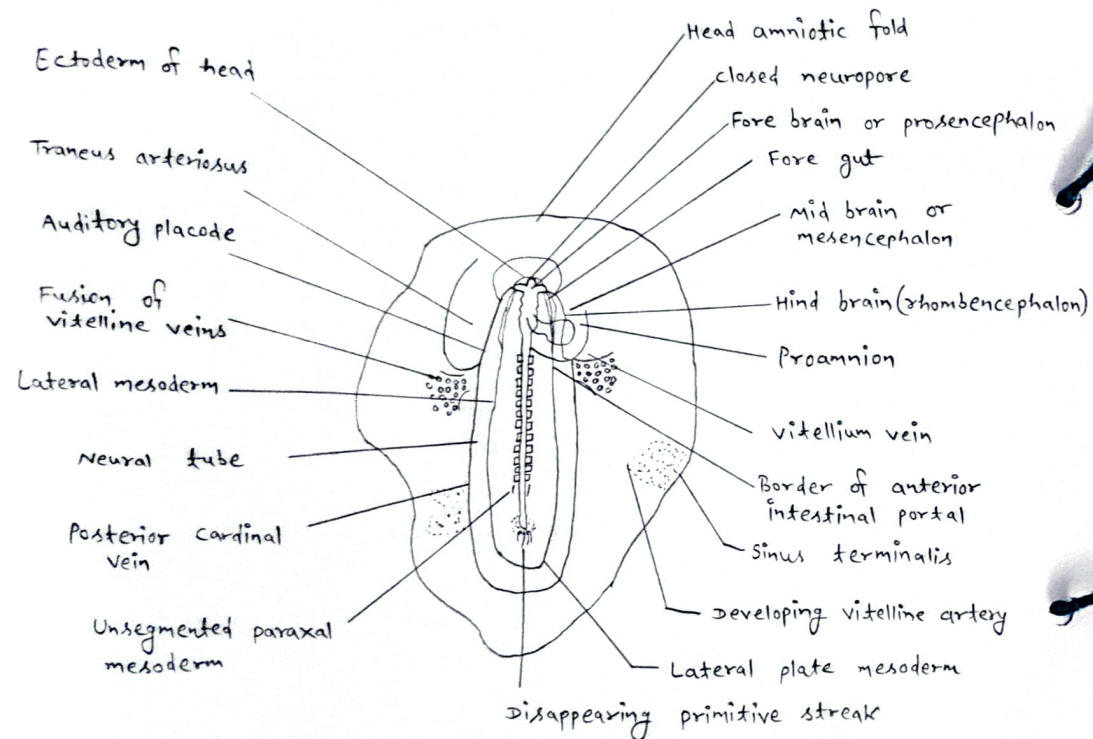 Ectoderm of head
Traneus arteriosus
Auditory placode
Fusion of
vitelline veins
Lateral mesoderm
Neural tube
Posterior cardinal
vein
Unsegmented paraxal
mesoderm
Head amniotic fold
closed neuropore
Fore brain or prosencephalon
Fore gut
Mid brain or
mesencephalon
Hind brain (rhombencephalon)
Proamnion
vitellium vein
Border of anterior
intestinal portal
Sinus terminalis
Developing vitelline artery
Lateral plate mesoderm
Disappearing primitive streak